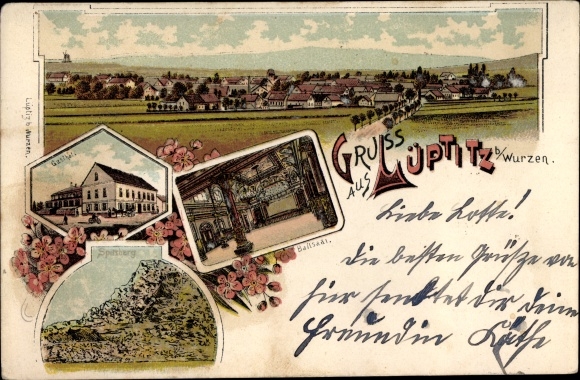 Lüptitz b. Wurzen.
Gasthof.
GRUSS
AUS LÜPTITZ
b/Wurzen.
Ballsaal.
Spitzberg
Liebe Lotte!
Die besten Grüsze von
hier sendet dir deine
Freundin Käthe